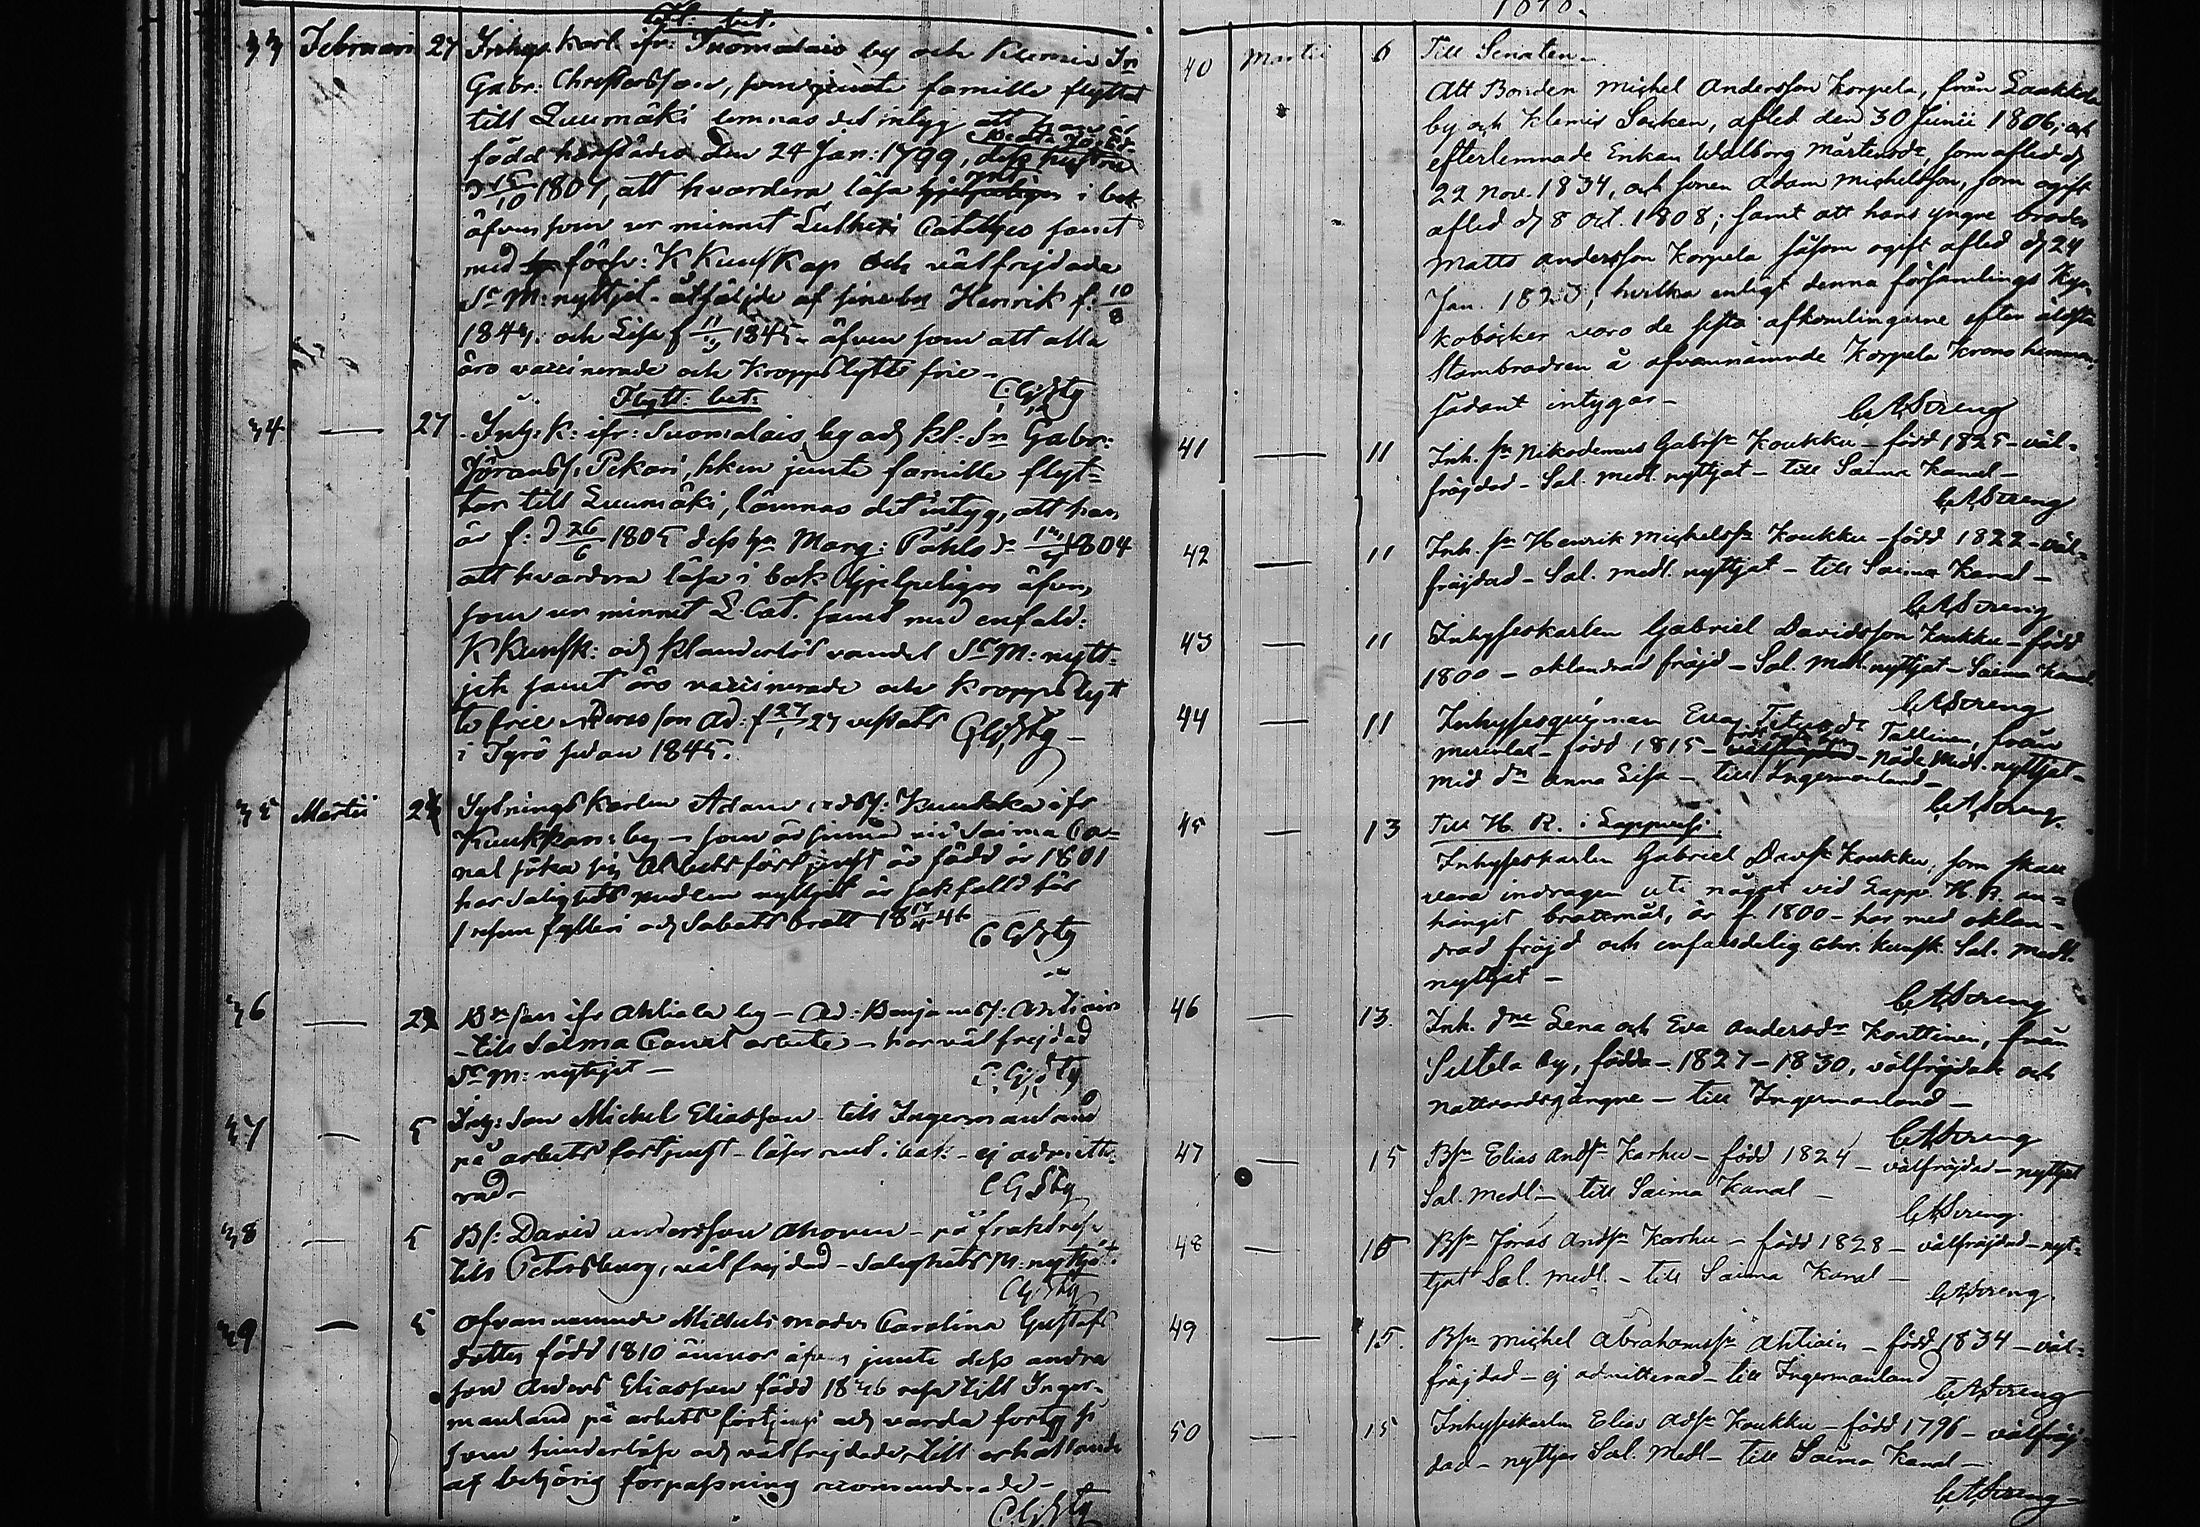 Fl: bet.
33 Februari 27 Inhys. Karl ifr: Suomalais by och Klemis Sn
Gabr: Christersson, som jemte familie flyttat
till Luumäki lemnas det intyg att han är
född härstädes den 24 Jan: 1799, dess hustru
1807, att hvardera läsa i bok
äfven som ur minnet Lutheri Catelhes samt
med förfr: K Kunskap och välfrejdade
Sr M: nyttjat åtföljde af sine bn Henrik f: 10/8
1844; och Lisa f 1845 äfven som att alla
äro vaccinerade och Kroppslytts frie -
C. G. Stg
Flytt: bet:
34 — 27 Inh: K: ifr: Suomalais by och Kl: Sn Gabr:
Jöranss. Pekari, hken jemte familie flyt=
tar till Luumäki, lämnas det intyg, att han
är f: d 26/6 1805 dess hu Marg: Påhls dr 1804
att hvardera läsa i bok hjelpeligen äfven
som ur minnet L. Cat. samt med enfald:
K Kunsk: och Klanderlös vandel Sr M: nytt=
jat samt äro vaccinerade och Kroppslyt
te frie deras son Ad: f 27 vistats
i Syrö sedan 1845.
35 Martii Sytningskarlen Adam Kuukka ifr
Kuukkan: by - som är sinnad vid Saima Ca=
nal söka sig Arbetsförtjenst är född år 1801
har Salighets medlen nyttjat är sakfälld för
1 resan fylleri och Sabats brott 46
C G Stg
36 — Bn son ifr Ahtiala by - Ad: Benjams: Ahtiain
- till Saima Canal arbete - har välfrejdad
Sr M: nyttjat - C. G. Stg
37 — 5 Inh: Son Michel Eliasson till Ingermanland
på arbets förtjenst - läser ren i bok: - ej admitte=
rad - C G Stg
38 — 5 Bs: David Andersson Ahonen - på fraktresa
till Petersburg, välfrejdad - Salighets M: nyttjat.
C G Stg
39 — 5 Ofvannemnde Michels moder Carolina Gustafs
dotter född 1810 ämnar äfven jemte dess andra
son Anders Eliasson född 1836 resa till Inger=
manland på arbets förtjenst och varda
som hinderlöse och välfrejdade till erhållande
af behörig förpassning recommenderade -
C. G. Stg
40 Martii 6 Till Senaten.
Att Bonden Michel Andersson Korpela, från Laukkola
by och Klemis Socken, afled den 30 Junii 1806; och
efterlemnade Enkan Walborg Mårtensdr, som afled d
22 Nov. 1834, och sonen Adam Michelsson, som ogift
afled d 8 Oct. 1808; samt att hans yngre broder
Matts Andersson Korpela såsom ogift afled d 24
Jan. 1823; hvilka enligt denna församlings Kyr=
koböcker voro de sista afkomlingarne efter äldsta
Stambrodren å ofvannämnde Korpela Krono hemman,
sådant intygar -
C. A. Streng
41 — 11 Inh. sn Nikodemus Gabrsn Koukku - född 1825 - väl=
fräjdad - Sal. medl. nyttjat - till Saima Kanal -
C. A. Streng
42 — 11 Inh. sn Henrik Michelssn Koukku - född 1822 - väl=
fräjdad - Sal. medl. nyttjat - till Saima Kanal -
C. A. Streng
43 — 11 Inhyseskarlen Gabriel Davidsson Koukku - född
1800 - oklandrad fräjd - Sal. medl. nyttjat - Saima Kanal
C. A. Streng
44 — 11 Inhysesqvinnan Eva Titusdr Tallinen, från
Muurula - född 1815 - Nåde Med. nyttjat -
med dn Anna Lisa - till Ingermanland -
C. A. Streng.
45 — 13 Till H. R. i Lappvesi.
Inhyseskarlen Gabriel Davsn Koukku, som skall
vara indragen uti något vid Lapp. H. R. an=
hängit brottmål, är f. 1800 - har med oklan=
drad fräjd och enfaldelig Chr. Kunsk. Sal. medl.
nyttjat -
C. A. Streng
46 — 13. Inh. dne Lena och Eva Andersdr Konttinen, från
Siltela by, födda - 1827 - 1830, välfräjdade och
nattvardsgångne - till Ingermanland -
C. A. Streng
47 — 15 Bsn Elias Andsn Karhu - född 1824 - välfräjdad - nyttjat
Sal. Medl. - till Saima Kanal -
C. A. Streng.
48 — 15 Bsn Jöras Andsn Karhu - född 1828 - välfräjdad - nyt=
tjat Sal. medl. - till Saima Kanal -
C. A. Streng.
49 — 15. Bsn Michel Abrahamssn Ahtiain - född 1834 - väl=
fräjdad - ej admitterad - till Ingermanland
C. A. Streng
50 — 15 Inhyseskarlen Elias Adsn Koukku - född 1796 - välfräj=
dad - nyttjar Sal. Medl. - till Saima Kanal -
C. A. Streng